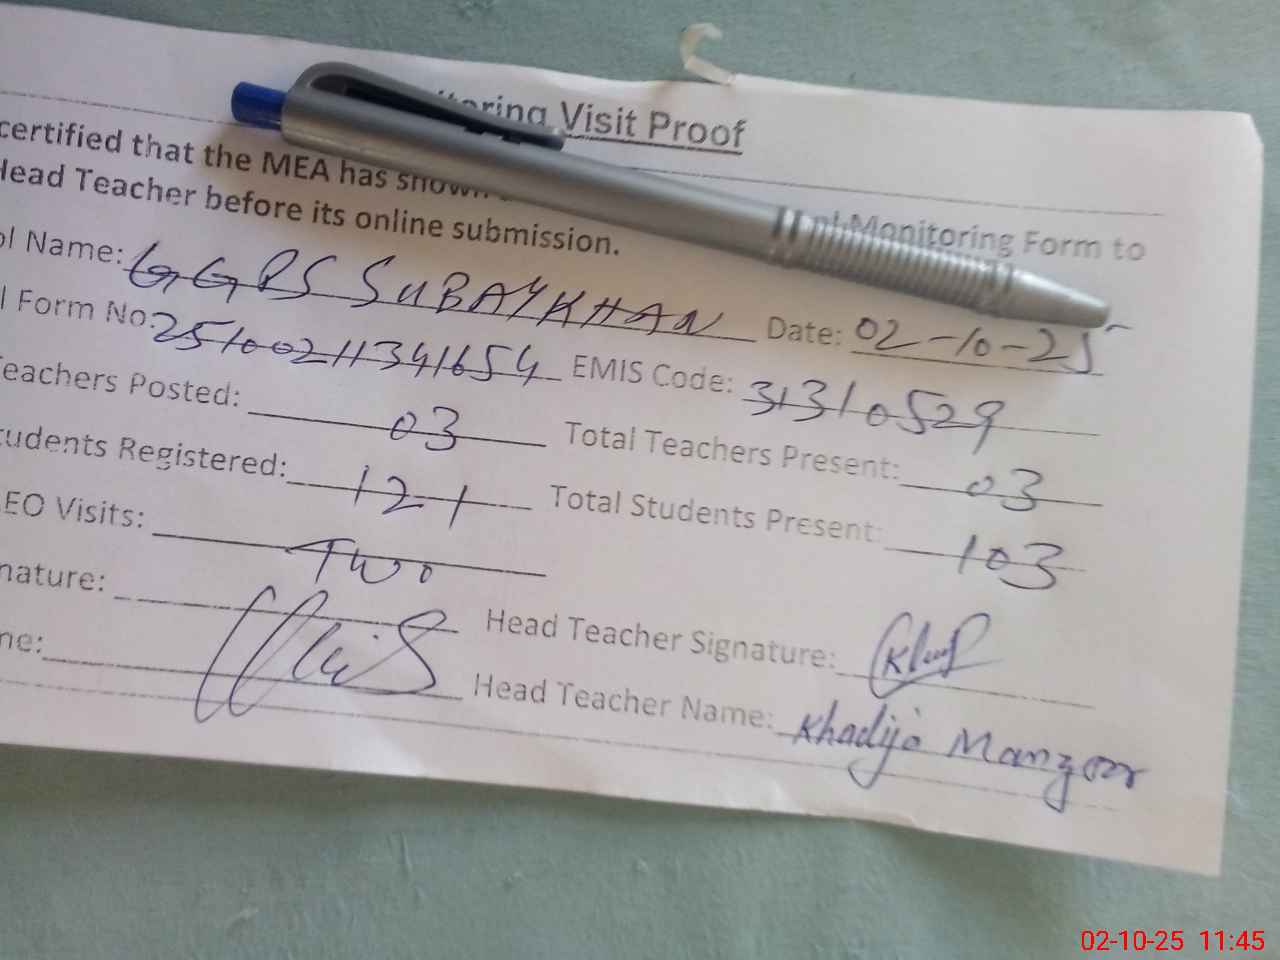 itoring Visit Proof
certified that the MEA has shown Monitoring Form to
Head Teacher before its online submission.
ol Name: GGPS SUBAYKHAN Date: 02-10-25
l Form No: 25100211341654 EMIS Code: 31310529
Teachers Posted: 03 Total Teachers Present: 03
tudents Registered: 121 Total Students Present: 103
EO Visits: Two
nature: Head Teacher Signature:
me: Head Teacher Name: Khadija Manzoor
02-10-25 11:45